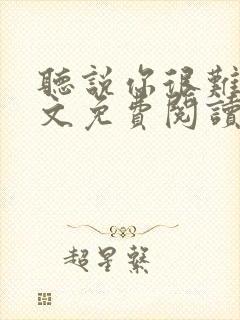 聽說你很難
文免費閱讀
超星繫